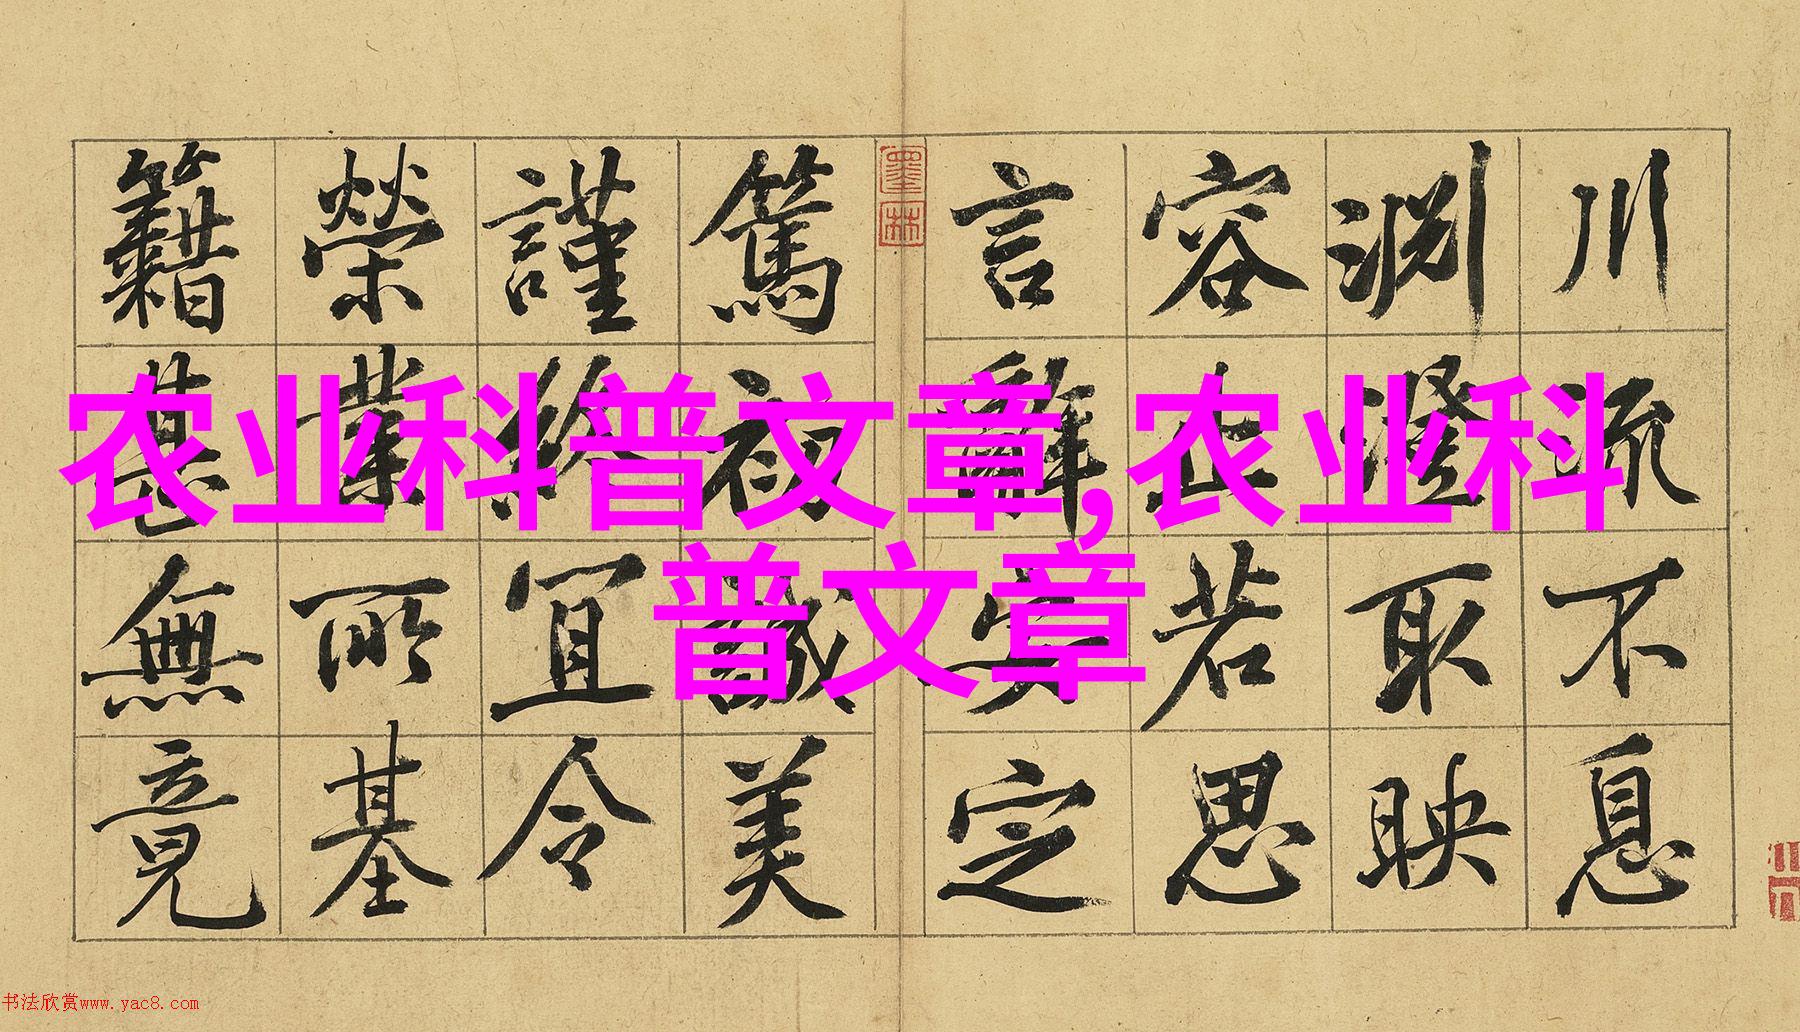 川流不息
淵澄取映
容止若思
言辭安定
墨林
篤初誠美
謹終宜令
榮業所基
籍甚無竟
农业科普文章,农业科
普文章
书法欣赏www.yac8.com